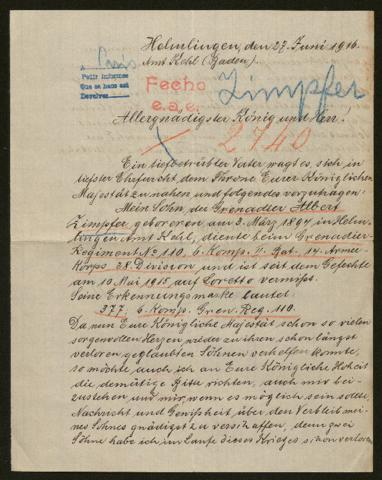 Helmlingen, den 27. Juni 1916.
Amt Kehl (Baden).
A París
Pedir informes
Que se hace así
Devolver
Fecho
e.a.e.
Zimpfer
Allergnädigster König und Herr!
2740
Ein tiefbetrübter Vater wagt es, sich, in
tiefster Ehrfurcht dem Throne Eurer Königlichen
Majestät zu nahen und folgendes vorzutragen:
Mein Sohn, der Grenadier Albert
Zimpfer, geboren am 3. März 1894 in Helm-
lingen Amt Kehl, diente beim Grenadier-
Regiment No 110, 6. Komp. II. Bat. 14. Armee-
Korps 28. Division und ist seit dem Gefechte
am 10. Mai 1915 auf Loretto vermisst.
Seine Erkennungsmarke lautet:
377, 6. Komp. Gren. Reg. 110.
Da nun Eure Königliche Majestät schon so vielen
sorgenvollen Herzen wieder zu ihren schon längst
verloren geglaubten Söhnen verhelfen konnte,
so möchte auch ich an Eure Königliche Hoheit
die demütige Bitte richten, auch mir bei-
zustehen und mir, wenn es möglich sein sollte,
Nachricht und Gewißheit, über den Verbleib mei-
nes Sohnes gnädigst zu verschaffen, denn zwei
Söhne habe ich im Laufe dieses Krieges schon verloren